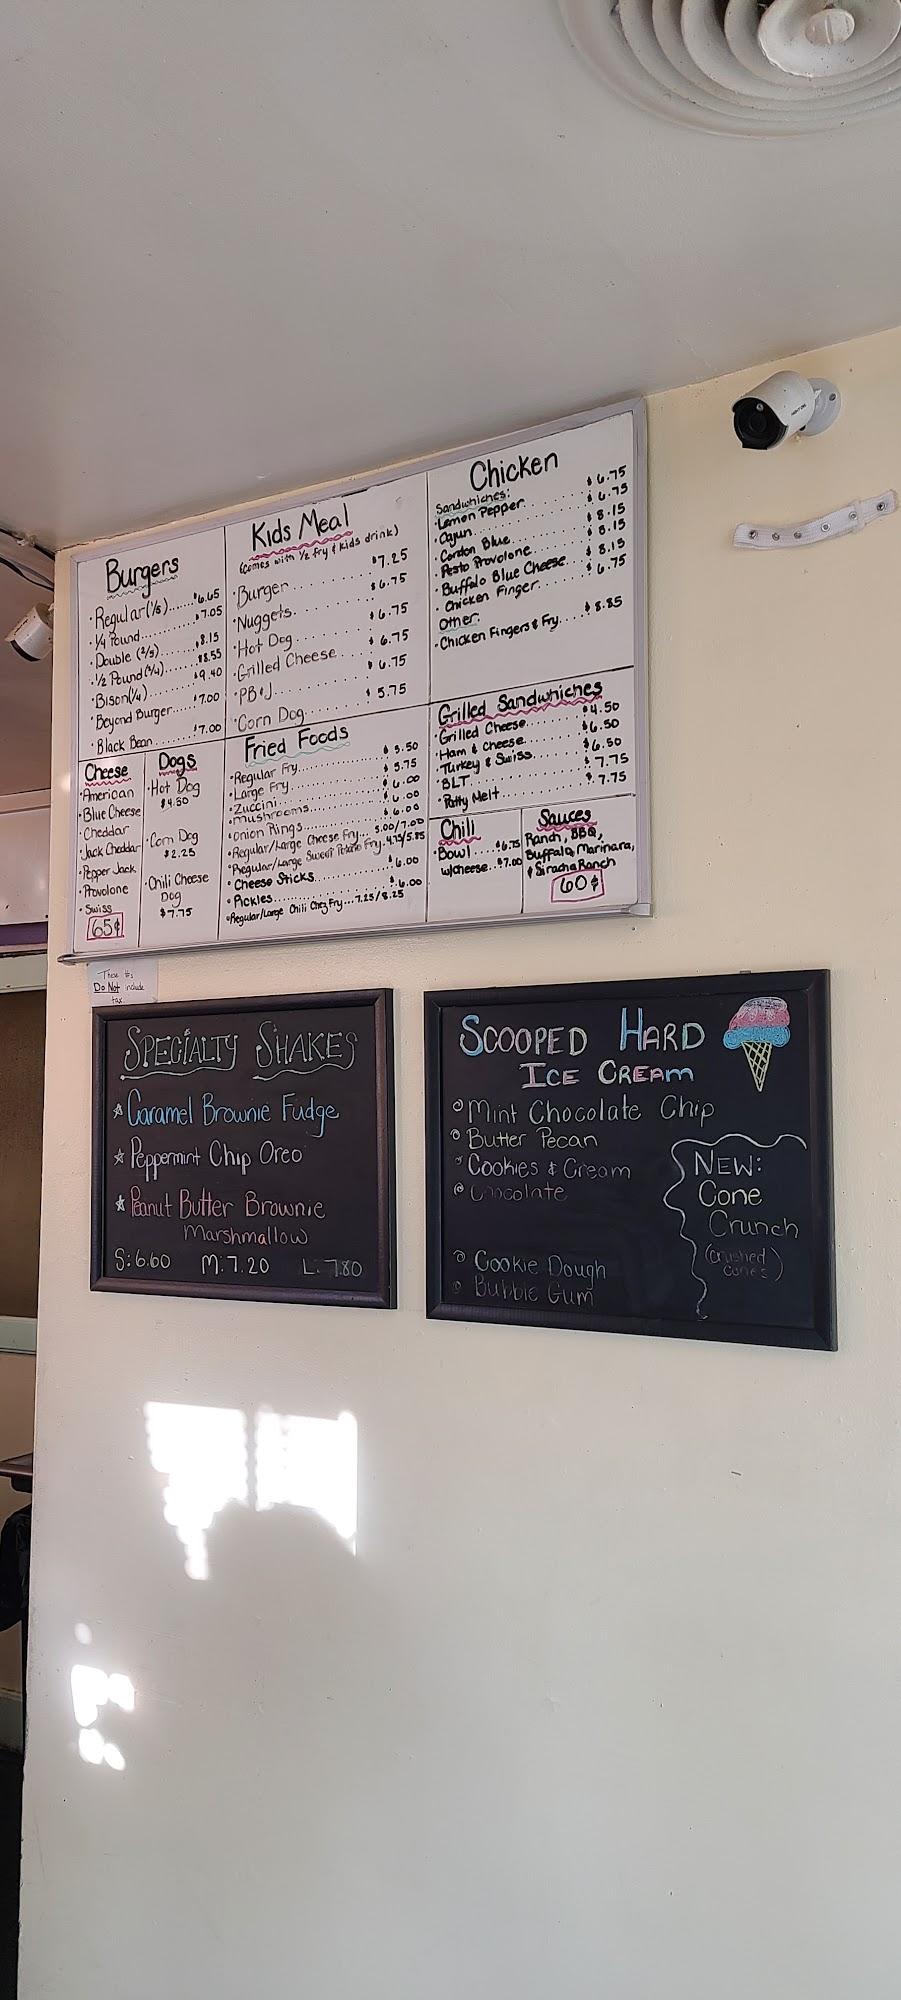 Burgers
·Regular (1/5)......$6.65
·1/4 Pound..........$7.05
·Double (2/5)......$8.15
·1/2 Pound (2/4)......$8.55
·Bison (1/4)........$9.40
·Beyond Burger......$7.00
·Black Bean..........$7.00
Kids Meal
(comes with 1/2 fry & kids drink)
·Burger..........$7.25
·Nuggets..........$6.75
·Hot Dog..........$6.75
·Grilled Cheese......$6.75
·PB&J..........$6.75
·Corn Dog..........$5.75
Chicken
Sandwhiches:
·Lemon Pepper..........$6.75
·Cajun..........$6.75
·Cordon Blue..........$8.15
·Pesto Provolone..........$8.15
·Buffalo Blue Cheese...$8.15
·Chicken Finger..........$6.75
Other:
·Chicken Fingers & Fry....$8.85
Cheese
·American
·Blue Cheese
·Cheddar
·Jack Cheddar
·Pepper Jack
·Provolone
·Swiss
65¢
Dogs
·Hot Dog
$4.50
·Corn Dog
$2.25
·Chili Cheese
Dog
$7.75
Fried Foods
·Regular Fry..........$3.50
·Large Fry..........$5.75
·Zuccini..........$6.00
·mushrooms..........$6.00
·Onion Rings..........$6.00
·Regular/Large Cheese Fry...5.00/7.00
·Regular/Large Sweet Potato Fry.4.75/5.85
·Cheese Sticks..........$6.00
·Pickles..........$6.00
·Regular/Large Chili Chez Fry...7.25/8.25
Grilled Sandwhiches
·Grilled Cheese..........$4.50
·Ham & cheese..........$6.50
·Turkey & Swiss..........$6.50
·BLT..........$7.75
·Patty Melt..........$7.75
Chili
·Bowl....$6.75
w/cheese...$7.00
Sauces
Ranch, BBQ,
Buffalo, Marinara,
& Siracha Ranch
60¢
These #s
Do Not include
tax
SPECIALTY SHAKES
☆ Caramel Brownie Fudge
☆ Peppermint Chip Oreo
☆ Peanut Butter Brownie
Marshmallow
S: 6.60 M: 7.20 L: 7.80
SCOOPED HARD
ICE CREAM
Mint Chocolate Chip
Butter Pecan
Cookies & Cream
Chocolate
Cookie Dough
Bubble Gum
NEW:
Cone
Crunch
(crushed
cones)